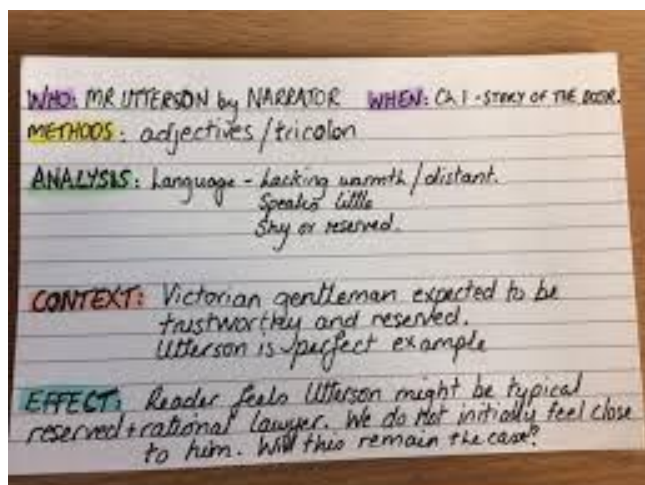 WHO: MR UTTERSON by NARRATOR WHEN: Ch 1 - STORY OF THE DOOR.
METHODS: adjectives/tricolon
ANALYSIS: Language - Lacking warmth/distant.
Speaks little
Shy or reserved.
CONTEXT: Victorian gentleman expected to be
trustworthy and reserved.
Utterson is perfect example
EFFECT: Reader feels Utterson might be typical
reserved + rational lawyer. We do not initially feel close
to him. Will this remain the case?